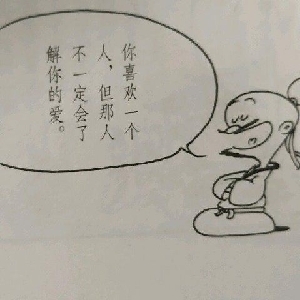 你喜欢一个
人，但那人
不一定会了
解你的爱。